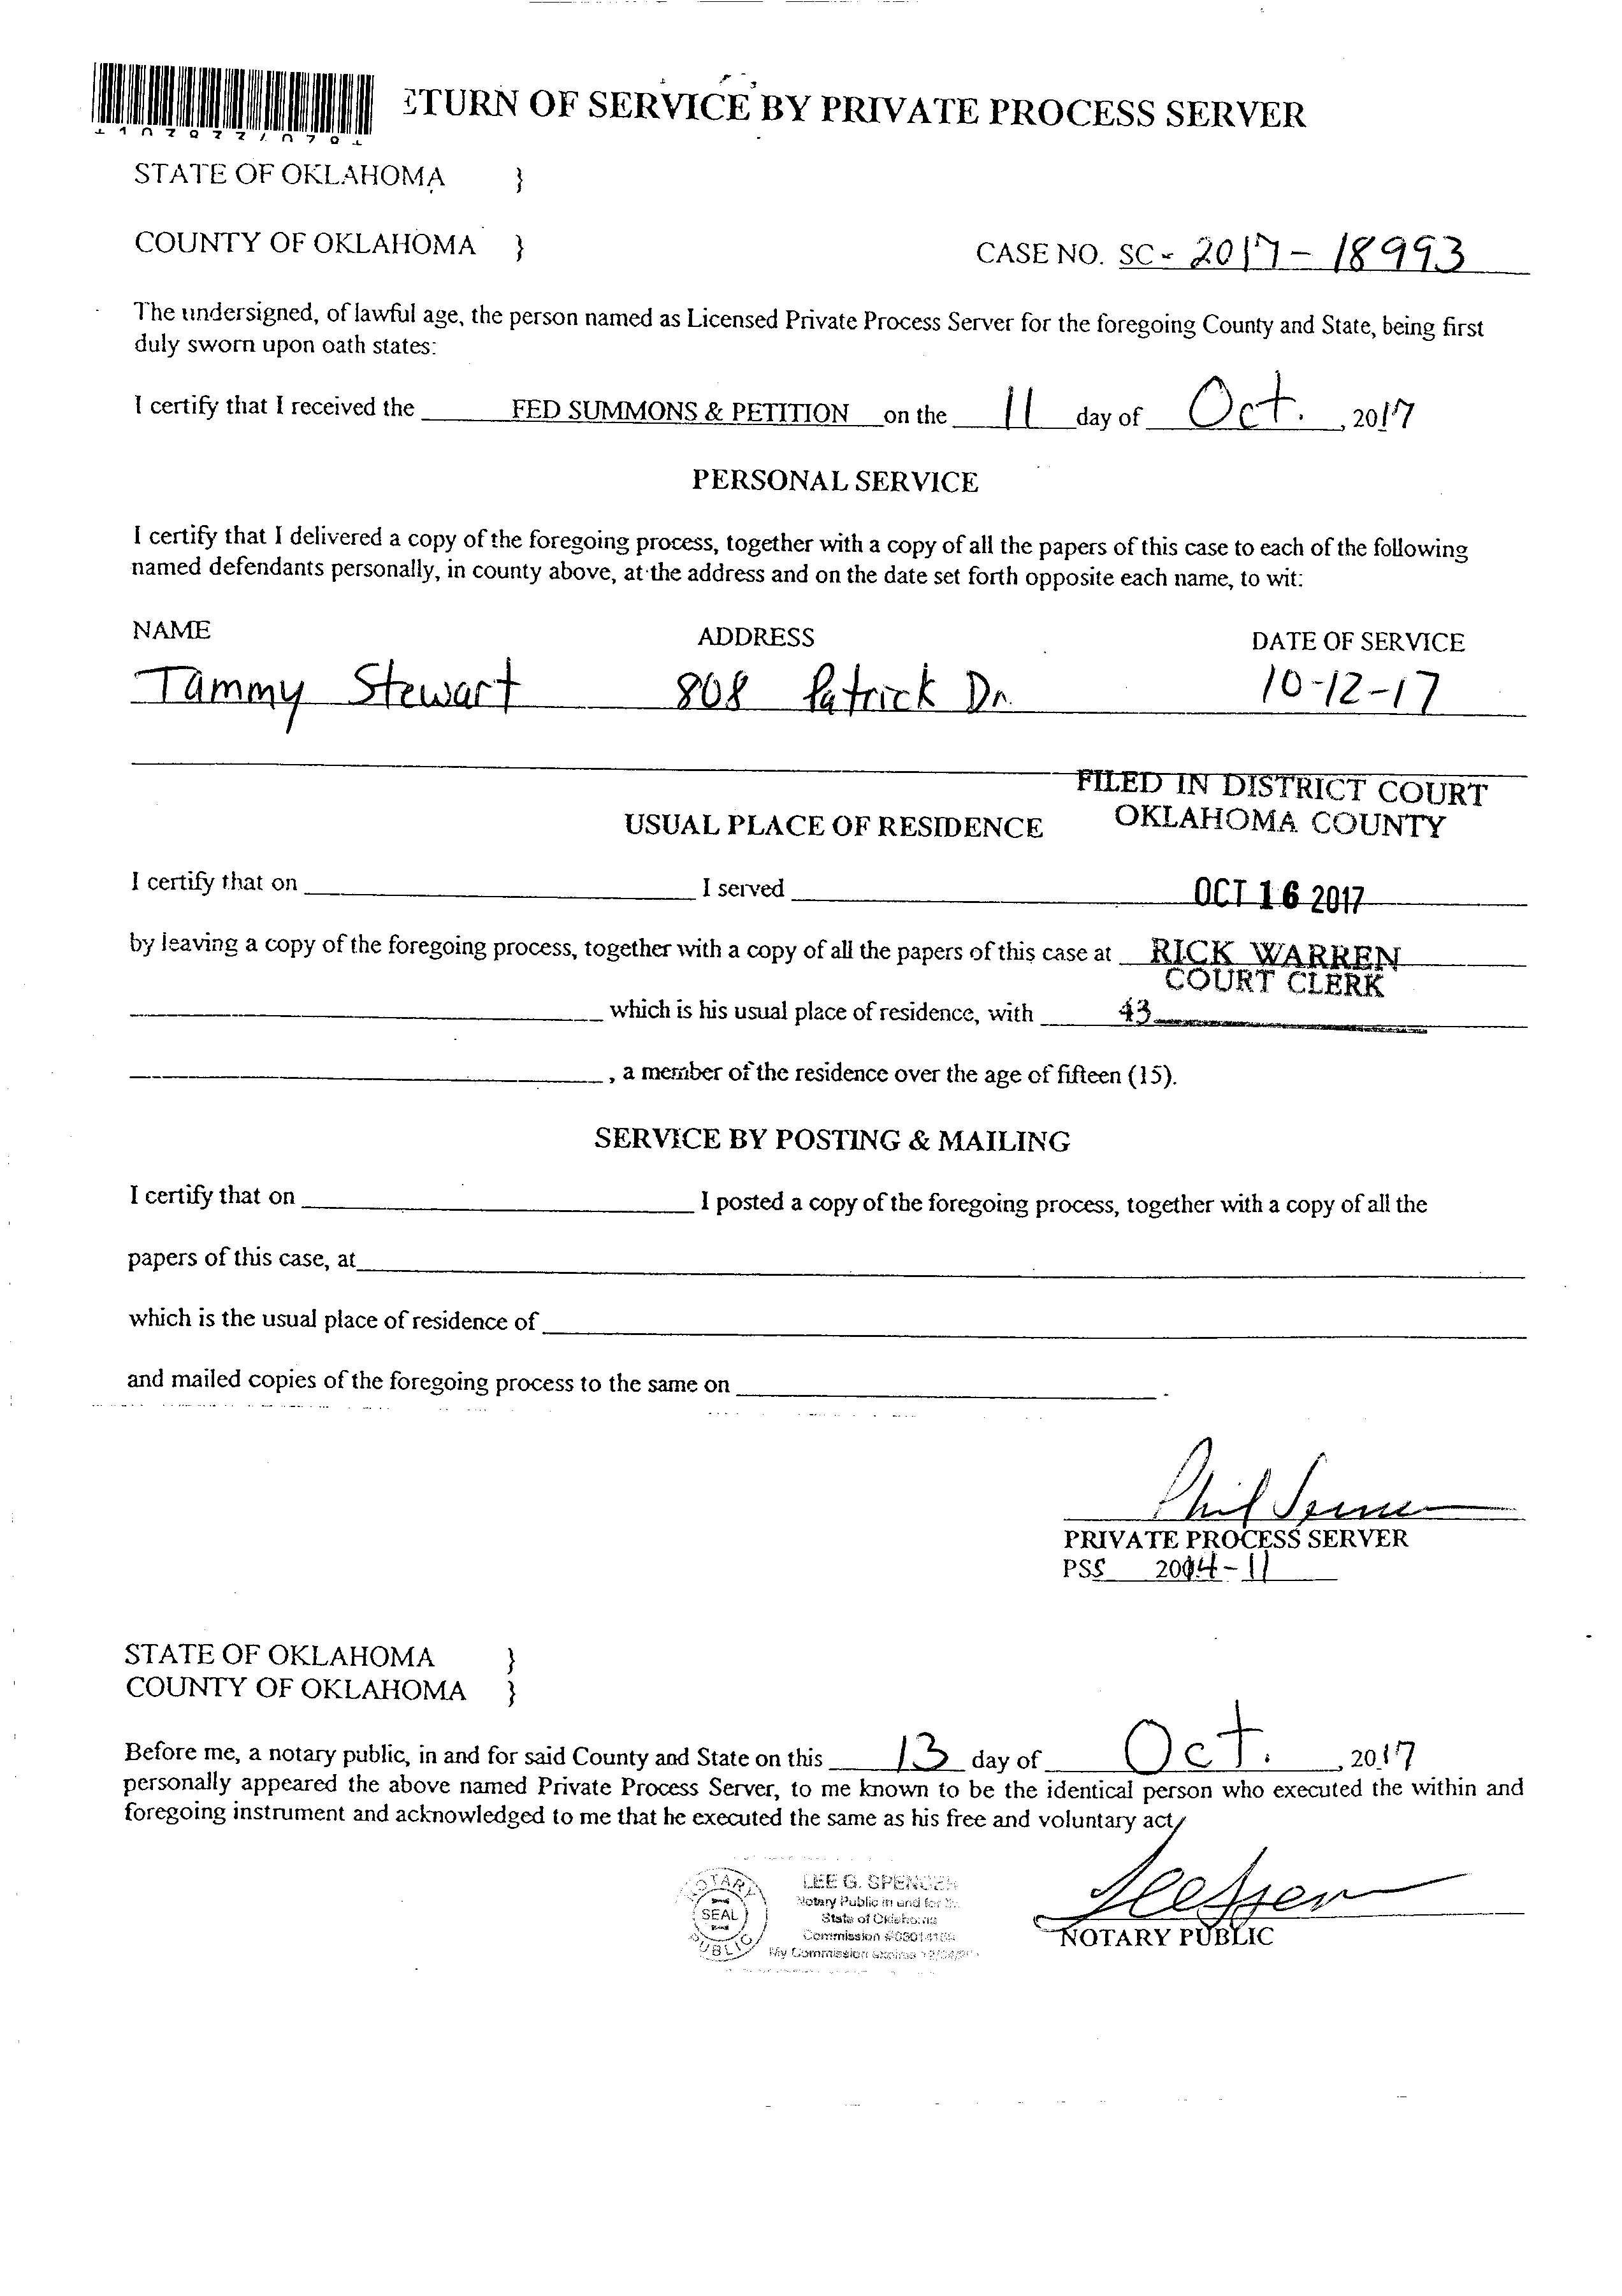 ETURN OF SERVICE BY PRIVATE PROCESS SERVER
STATE OF OKLAHOMA }
COUNTY OF OKLAHOMA }
CASE NO. SC - 2017 - 18993
The undersigned, of lawful age, the person named as Licensed Private Process Server for the foregoing County and State, being first
duly sworn upon oath states:
I certify that I received the FED SUMMONS & PETITION on the 11 day of Oct. , 2017
PERSONAL SERVICE
I certify that I delivered a copy of the foregoing process, together with a copy of all the papers of this case to each of the following
named defendants personally, in county above, at the address and on the date set forth opposite each name, to wit:
NAME ADDRESS DATE OF SERVICE
Tammy Stewart 808 Patrick Dr. 10-12-17
FILED IN DISTRICT COURT
OKLAHOMA COUNTY
USUAL PLACE OF RESIDENCE
I certify that on I served
OCT 16 2017
by leaving a copy of the foregoing process, together with a copy of all the papers of this case at
RICK WARREN
COURT CLERK
which is his usual place of residence, with
43
, a member of the residence over the age of fifteen (15).
SERVICE BY POSTING & MAILING
I certify that on I posted a copy of the foregoing process, together with a copy of all the
papers of this case, at
which is the usual place of residence of
and mailed copies of the foregoing process to the same on .
Phil Spencer
PRIVATE PROCESS SERVER
PSS 2004-11
STATE OF OKLAHOMA }
COUNTY OF OKLAHOMA }
Before me, a notary public, in and for said County and State on this 13 day of Oct. , 2017
personally appeared the above named Private Process Server, to me known to be the identical person who executed the within and
foregoing instrument and acknowledged to me that he executed the same as his free and voluntary act
NOTARY PUBLIC
SEAL
LEE G. SPENCER
Notary Public in and for
State of Oklahoma
Commission
My Commission expires
NOTARY PUBLIC